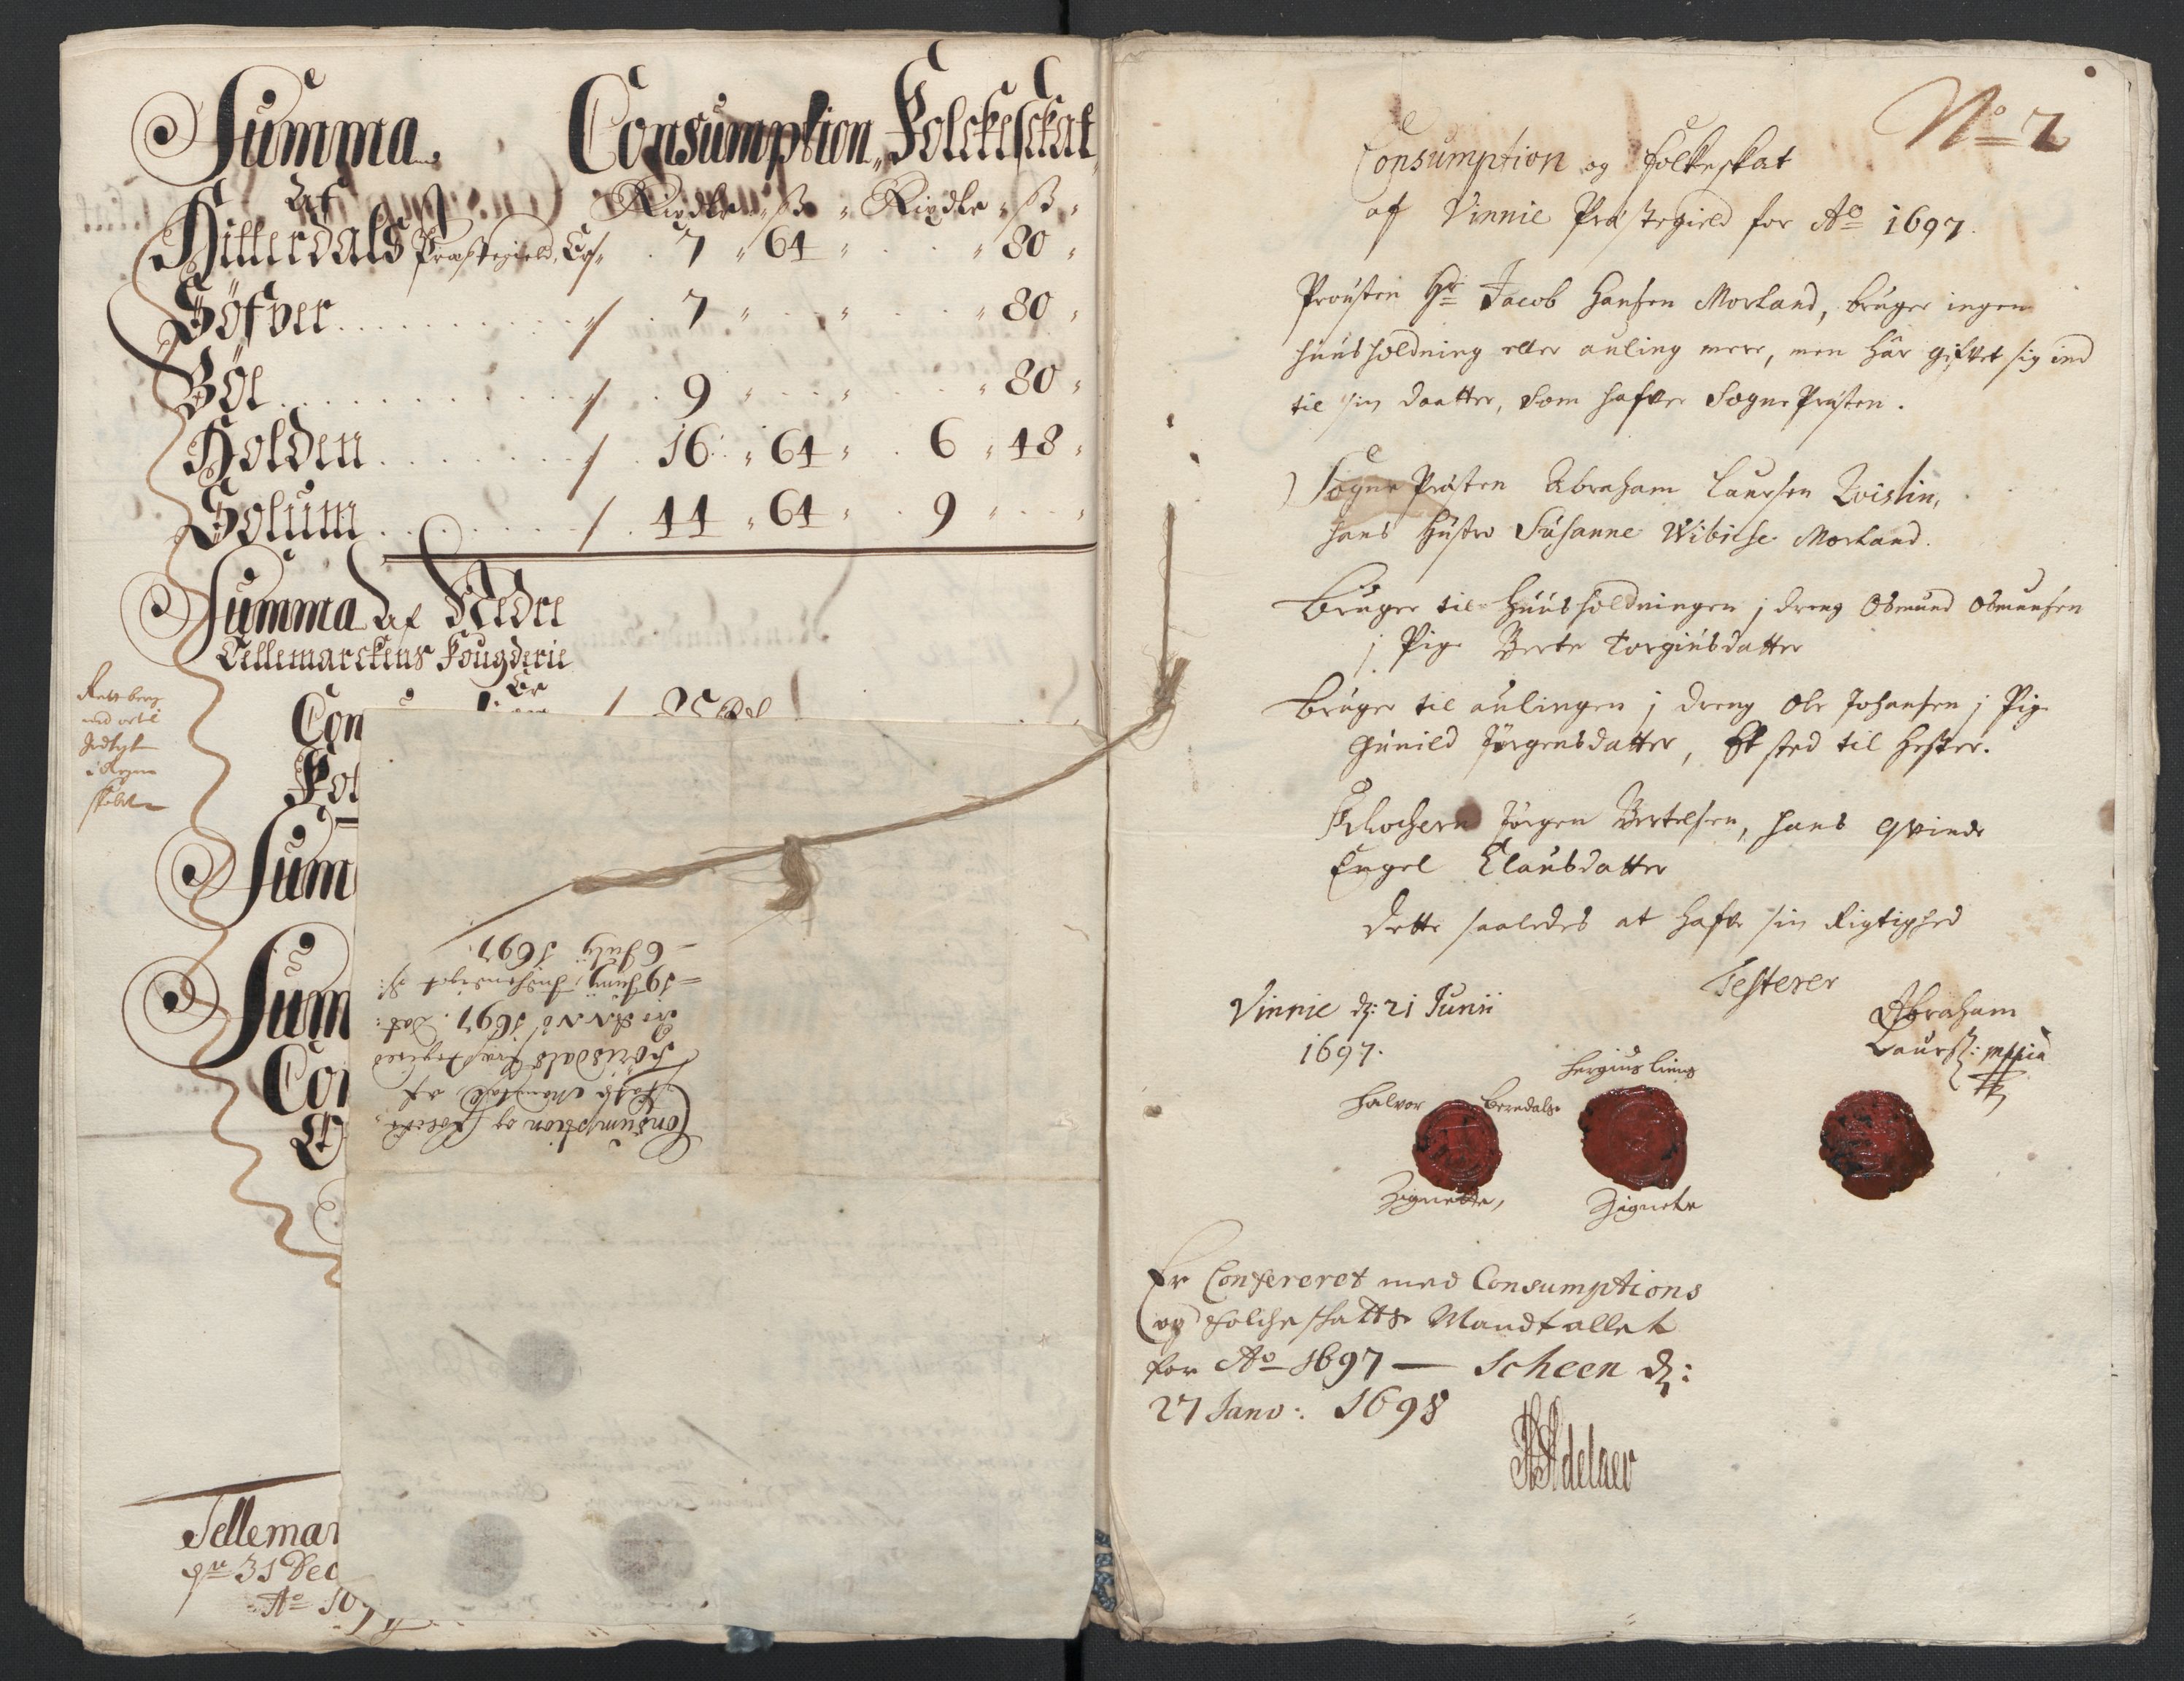 Summa. Consumption, Folckeschat,
Af Rixdlr. ß. Rixdlr ß.
Hitterdals Præstegield, Er 7 64 80
Söfver 7 80
Böe 9 80
Holden 16 64 6 48
Solum 44 64 9
Summa af Nedre
Tellemarckens Fougderie
Er
Con
Fol
Sum
Sum
Con
Tellemar
31 Dec
Ao
Consumption og Folcke
skats Mandtal af
Præstegield
pro Anno 1697. Dat:
19 Junij,
6 Julij 1697.
No 7
Consumption og Folkeskat
af Vinnie Præstegield for Ao 1697.
Provsten Hr Jacob Hansen Morland, bruger ingen
huusholdning eller auling mere, men har gifvet sig ind
til sin daatter, som hafver Sogne Præsten.
Sogne Præsten Abraham Laursen Qvislin,
hans Hustro Susanne Wibikse Morland.
Bruger til Huusholdningen j dreng Osmund Osmunsen
j Pige Berte Torgiusdatter
Bruger til aulingen j dreng Ole Johansen j Pige
Gunild Jörgensdatter, Et sted til Hester.
Klocheren Jörgen Bertelsen, hans Qvinde
Engel Clausdatter
Dette saaledes at hafve sin Rigtighed
Testerer
Vinnie d: 21 Junii
1697.
Abraham
Laurs: mppia
Halvor
Zignette,
Zignete
Er Confereret med Consumptions
og Folche skatts Mandtallet
for Ao 1697 — Scheen d:
27 Janv: 1698
HAdelaer